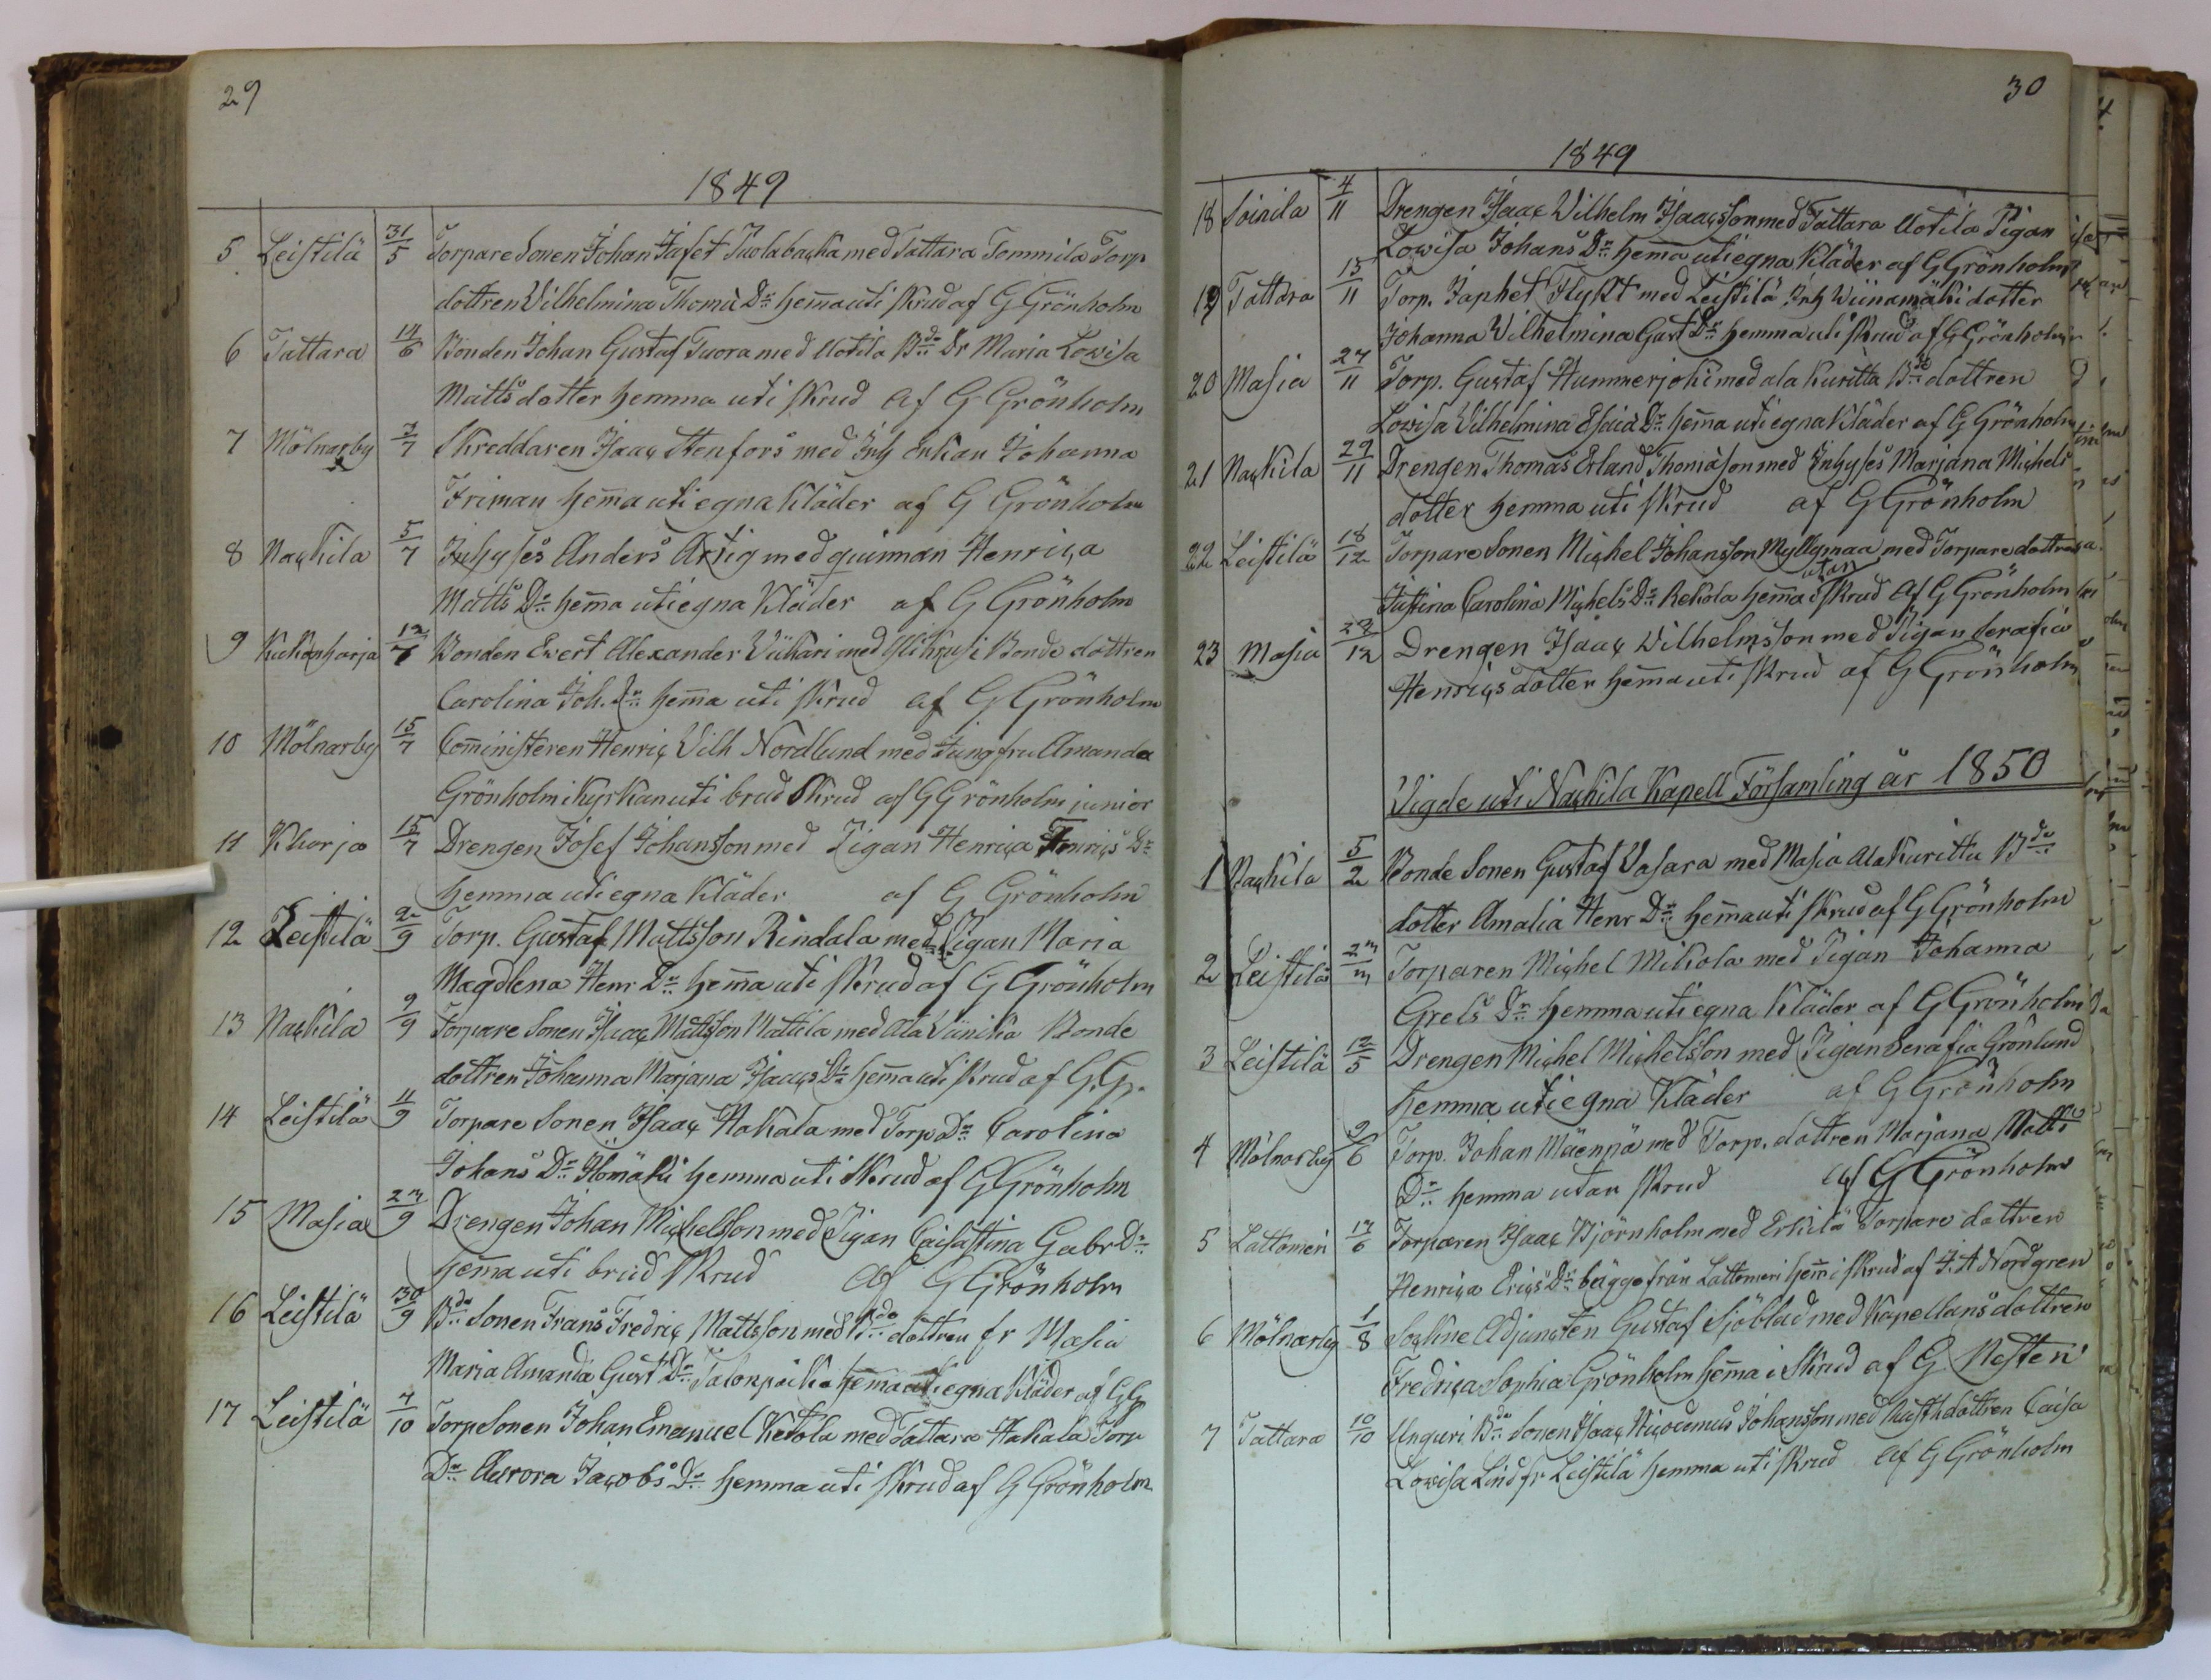 29
1849
5 Leistilä 31/5 Torpare Sonen Johan Jafet Tuolabacka med Tattara Tommila Torp
dottren Vilhelmina Thoma Dr hemma uti skrud af G Grönholm
6 Tattara 14/6 Bonden Johan Gustaf Tuora med Uotila Bde Dr Maria Lovisa
Matts dotter hemma uti skrud af G Grönholm
7 Mölnarby 3/7 Skreddaren Isaac Stenfors med Inh Enkan Johanna
Friman hemma uti egna kläder af G Grönholm
8 Nackila 5/7 Inhyses Anders Artig med quinnan Henrica
Matts Dr hemma uti egna kläder af G Grönholm
9 Kukonharja 12/7 Bonden Evert Alexander Viikari med Bonde dottren
Carolina Joh. Dr hemma uti skrud af G Grönholm
10 Mölnarby 15/7 Comministeren Henric Vilh Nordlund med Jungfru Amanda
Grönholm i kyrkan uti brud skrud af G Grönholm junior
11 Kharja 15/7 Drengen Josef Johansson med Pigan Henrica Henrics Dr
hemma uti egna kläder af G Grönholm
12 Leistilä 2/9 Torp. Gustaf Mattsson Rindala med Pigan Maria
Magdlena Henr Dr hemma uti skrud af G Grönholm
13 Nackila 9/9 Torpare Sonen Isaac Mattsson Mattila med Ala Viinika Bonde
dottren Johanna Marjana Isaacs Dr hemma uti skrud af G. Gr.
14 Leistilä 11/9 Torpare Sonen Isaac Hakala med Torp Dr Carolina
Johans Dr Ilomäki hemma uti skrud af G Grönholm
15 Masia 23/9 Drengen Johan Michelsson med Pigan Caisastina Gabr Dr
hemma uti brud skrud af G Grönholm
16 Leistilä 30/9 Bde Sonen Frans Fredric Mattsson med Bde dottren fr Masia
Maria Amanda Gust Dr Talonpoika hemma uti egna kläder af G G
17 Leistilä 4/10 Torp Sonen Johan Emanuel Ketola med Tattara Hakala Torp
Dr Aurora Jacobs Dr hemma uti skrud af G Grönholm
30
1849
18 Soinila 4/11 Drengen Isaac Vilhelm Isaacsson med Tattara Uotila Pigan
Lovisa Johans Dr hemma uti egna kläder af G Grönholm
19 Tattara 13/11 Torp. Japhet Flykt med Leistilä Inh Wiinamäki dotter
Johanna Vilhelmina Gust Dr hemma uti skrud af G Grönholm
20 Masia 27/11 Torp. Gustaf Hummerjoki med ala Kuritta Bde dottren
Lovisa Vilhelmina Esaia Dr hemma uti egna kläder af G Grönholm
21 Nackila 29/11 Drengen Thomas Erland Thomasson med Inhyses Marjana Michels
dotter hemma uti skrud af G Grönholm
22 Leistilä 18/12 Torpare Sonen Michel Johansson Myllymaa med Torpare dottren
Justina Carolina Michels Dr Rekola hemma utan skrud af G Grönholm
23 Masia 28/12 Drengen Isaac Vilhelmsson med Pigan Serafia
Henrics dotter hemma uti skrud af G Grönholm
Vigde uti Nackila Kapell Församling år 1850
1 Nackila 5/2 Bonde Sonen Gustaf Vasara med Masia Ala Kuritta Bde
dotter Amalia Henr Dr hemma uti skrud af G Grönholm
2 Leistilä 23/3 Torparen Michel Mikola med Pigan Johanna
Grels Dr hemma uti egna kläder af G Grönholm
3 Leistilä 12/5 Drengen Michel Michelsson med Pigan Serafia Grönlund
hemma uti egna kläder af G Grönholm
4 Mölnarby 9/6 Torp. Johan Mäenpä med Torp. dottren Marjana Matts
Dr hemma utan skrud af G Grönholm
5 Lattomeri 13/6 Torparen Isaac Björnholm med Erkilä Torpare dottren
Henrica Erics Dr bägge från Lattomeri hemma i skrud af F. A Nordgren
6 Mölnarby 1/8 Sockne Adjuncten Gustaf Sjöblad med Kapellans dottren
Fredrica Sophia Grönholm hemma i skrud af G
7 Tattara 10/10 Unguri Bde Sonen Isaac Nicodemus Johansson med Rusth dottren Caisa
Lovisa Lind fr Leistilä hemma uti skrud af G Grönholm